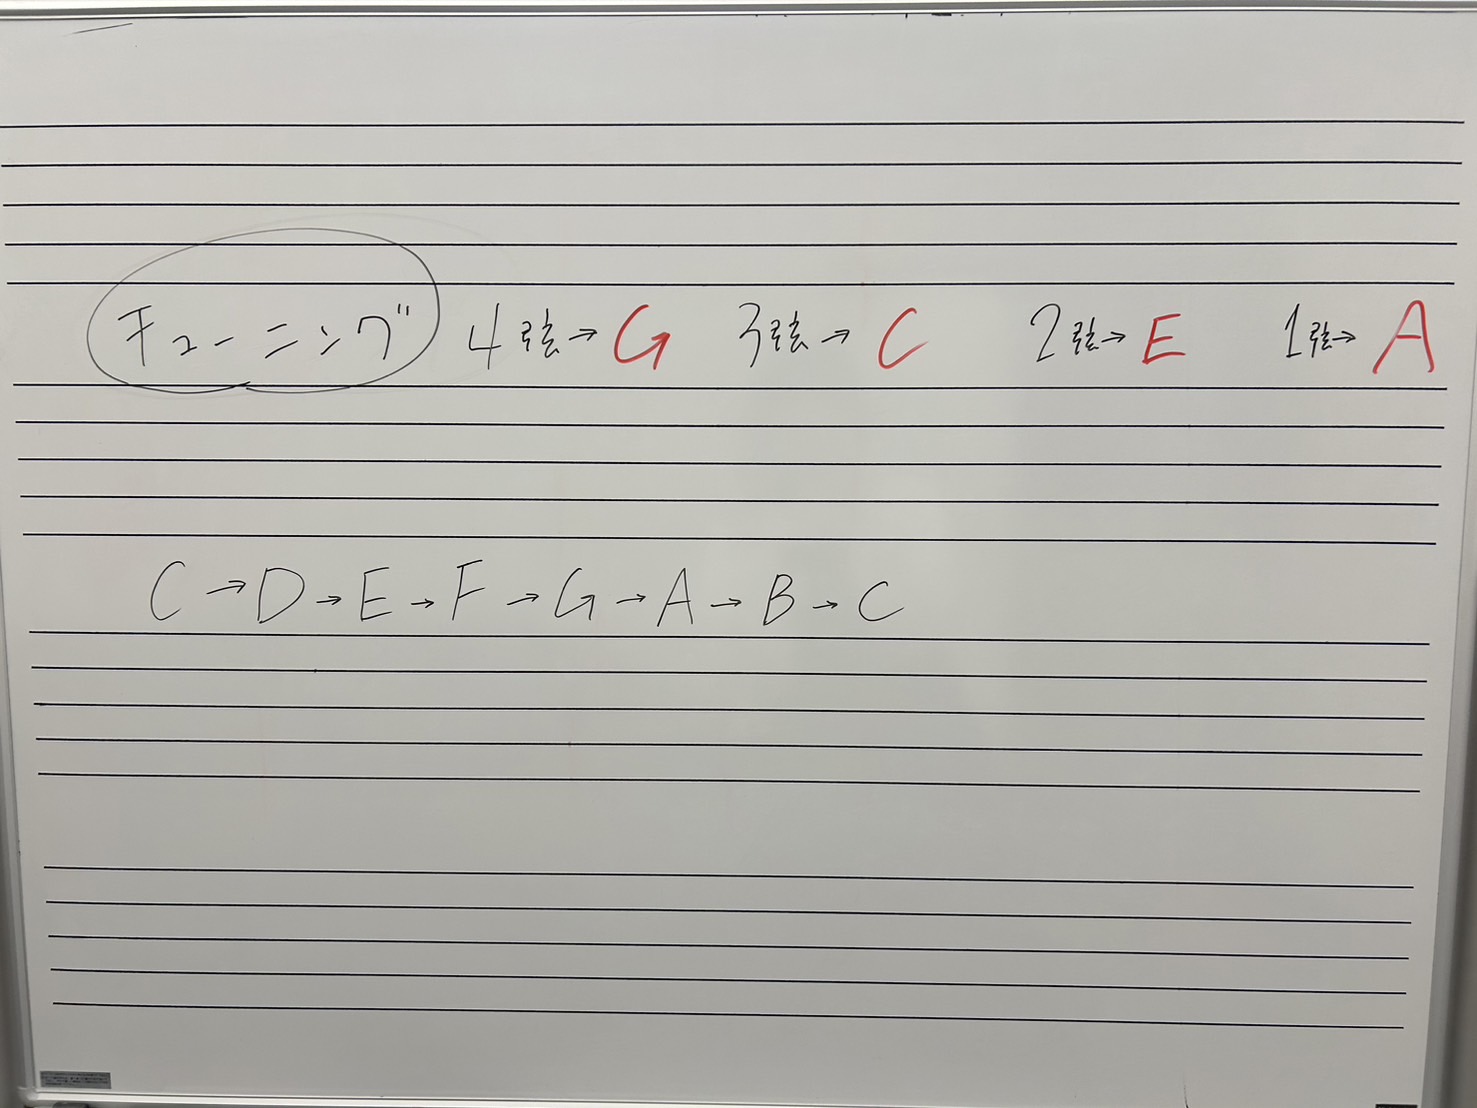 チューニング 4弦→G 3弦→C 2弦→E 1弦→A
C→D→E→F→G→A→B→C